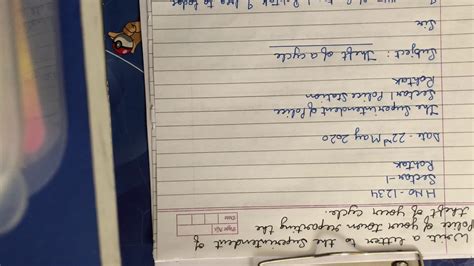 Page No.
Date
Write a letter to the Superintendent of
Police of your Town reporting the
theft of your cycle.
H.No - 1234
Sector-1
Rohtak
Date - 22nd May 2020
The Superintendent of Police
Sector 1 Police Station
Rohtak
Subject : Theft of a cycle
Sir